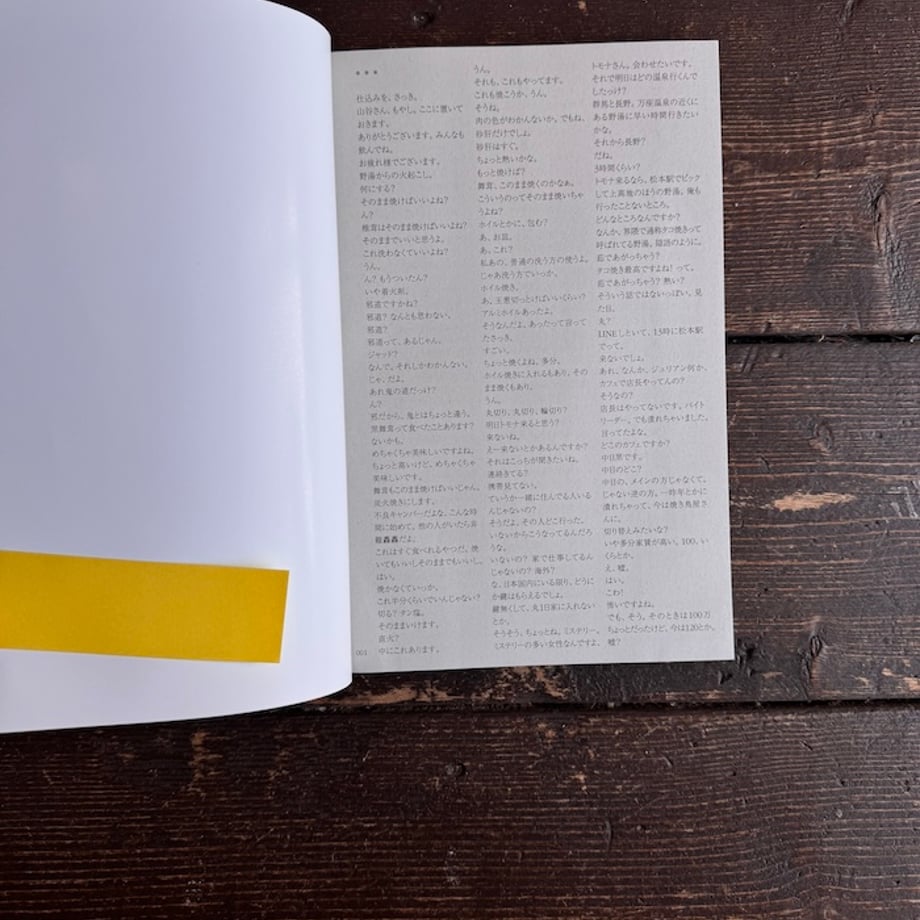 ●●●
仕込みを、さっき。
山谷さん、もやし。ここに置いて
おきます。
ありがとうございます。みんなも
飲んでね。
お疲れ様でございます。
野湯からの火起こし。
何にする?
そのまま焼けばいいよね?
ん?
椎茸はそのまま焼けばいいよね?
そのままでいいと思うよ。
これ洗わなくていいよね?
うん。
ん? もうついたん?
いや着火剤。
邪道ですかね?
邪道? なんとも思わない。
邪道?
邪道って、あるじゃん。
ジャッド?
なんで。それしかわかんない。
じゃ、だよ。
あれ鬼の道だっけ?
ん?
邪だから、鬼とはちょっと違う。
黒舞茸って食べたことあります?
ないかも。
めちゃくちゃ美味しいですよね。
ちょっと高いけど、めちゃくちゃ
美味しいです。
舞茸もこのまま焼けばいいじゃん。
炭火焼きにします。
不良キャンパーだよな。こんな時
間に始めて。他の人がいたら非
難轟轟だよ。
これはすぐ食べれるやつだ。焼
いてもいいしそのままでもいいし。
はい。
焼かなくていっか。
これ半分くらいでいんじゃない?
切る? タン塩。
そのままいけます。
直火?
中にこれあります。
001
うん。
それも、これもやってます。
これも焼こうか、うん。
そうね。
肉の色がわかんないか。でもね、
砂肝だけでしょ。
砂肝はすぐ。
ちょっと熱いかな。
もっと焼けば?
舞茸、このまま焼くのかなぁ。
こういうのってそのまま焼いちゃ
うよね?
ホイルとかに、包む?
あ、お皿。
あ、これ?
私あの、普通の洗う方の使うよ。
じゃあ洗う方でいっか。
ホイル焼き。
あ、玉葱切っとけばいいくらい?
アルミホイルあったよ。
そうなんだよ、あったって言って
たさっき。
すごい。
ちょっと焼くよね、多分。
ホイル焼きに入れるもあり、その
まま焼くもあり。
うん。
丸切り、丸切り、輪切り?
明日トモナ来ると思う?
来ないね。
え一来ないとかあるんですか?
それはこっちが聞きたいね。
連絡きてる?
携帯見てない。
ていうか一緒に住んでる人いる
んじゃないの?
そうだよ、その人どこ行った。
いないからこうなってるんだろ
うな。
いないの? 家で仕事してるん
じゃないの? 海外?
な、日本国内にいる限り、どうに
か鍵はもらえるでしょ。
鍵無くして、丸1日家に入れない
とか。
そうそう、ちょっとね、ミステリー。
ミステリーの多い女性なんですよ、
トモナさん。会わせたいです。
それで明日はどの温泉行くんで
したっけ?
群馬と長野。万座温泉の近くに
ある野湯に早い時間行きたい
かな。
それから長野?
だね。
3時間くらい?
トモナ来るなら、松本駅でピック
して上高地のほうの野湯。俺も
行ったことないところ。
どんなところなんですか?
なんか、界隈で通称タコ焼きって
呼ばれてる野湯。隠語のように。
茹であがっちゃう?
タコ焼き最高ですよね! って。
茹であがっちゃう? 熱い?
そういう話ではないっぽい。見
た目。
丸?
LINEしといて、13時に松本駅
でって。
来ないでしょ。
あれ、なんか、ジュリアン何か、
カフェで店長やってんの?
そうなの?
店長はやってないです。バイト
リーダー。でも潰れちゃいました。
言ってたよな。
どこのカフェですか?
中目黒です。
中目のどこ?
中目の、メインの方じゃなくて、
じゃない逆の方。一時年とかに
潰れちゃって、今は焼き鳥屋さ
んに。
切り替えみたいな?
いや多分家賃が高い。100、い
くらとか。
え、嘘。
はい。
こわ!
怖いですよね。
でも、そう。そのときは100万
ちょっとだったけど、今は120とか。
嘘?